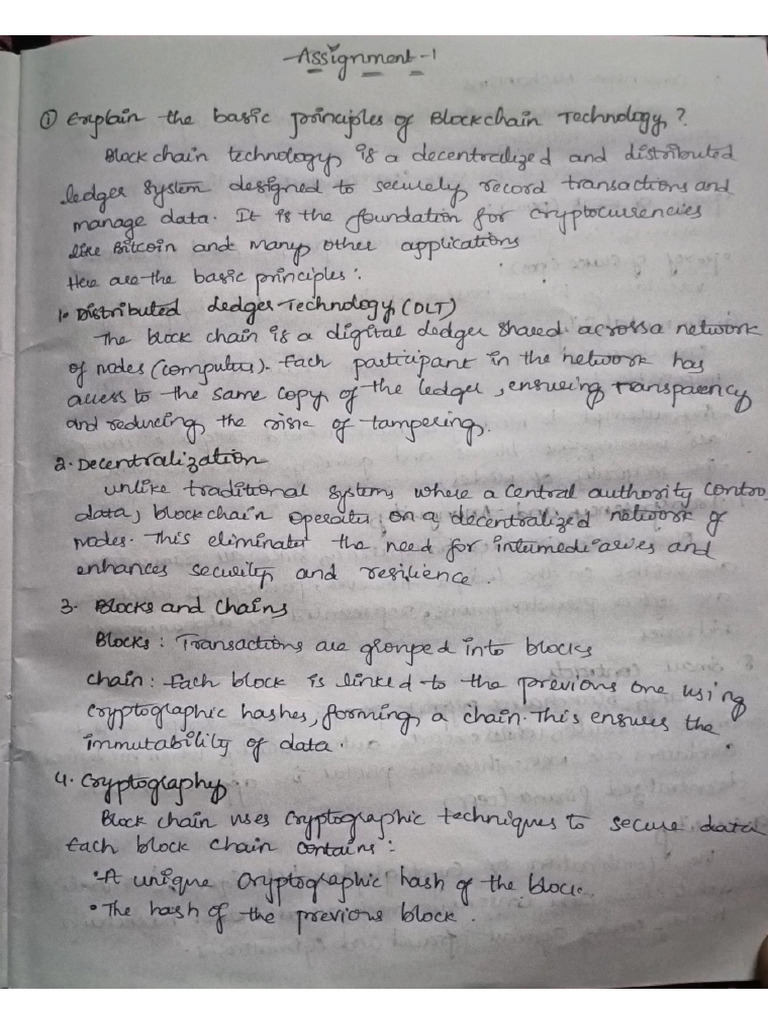 Assignment-1
① Explain the basic principles of Blockchain Technology?
Block chain technology is a decentralized and distributed
ledger system designed to securely record transactions and
manage data. It is the foundation for cryptocurrencies
like Bitcoin and many other applications
Here are the basic principles:
1. Distributed Ledger Technology (DLT)
The block chain is a digital ledger shared across a network
of nodes (computers). Each participant in the network has
access to the same copy of the ledger, ensuring transparency
and reducing the risk of tampering.
2. Decentralization
unlike traditional systems where a central authority contro
data, blockchain operates on a decentralized network of
nodes. This eliminates the need for intermediaries and
enhances security and resilience.
3. Blocks and Chains
Blocks: Transactions are grouped into blocks
Chain: Each block is linked to the previous one using
cryptographic hashes, forming a chain. This ensures the
immutability of data.
4. Cryptography
Block chain uses cryptographic techniques to secure data
Each block chain contains:
• A unique cryptographic hash of the block.
• The hash of the previous block.